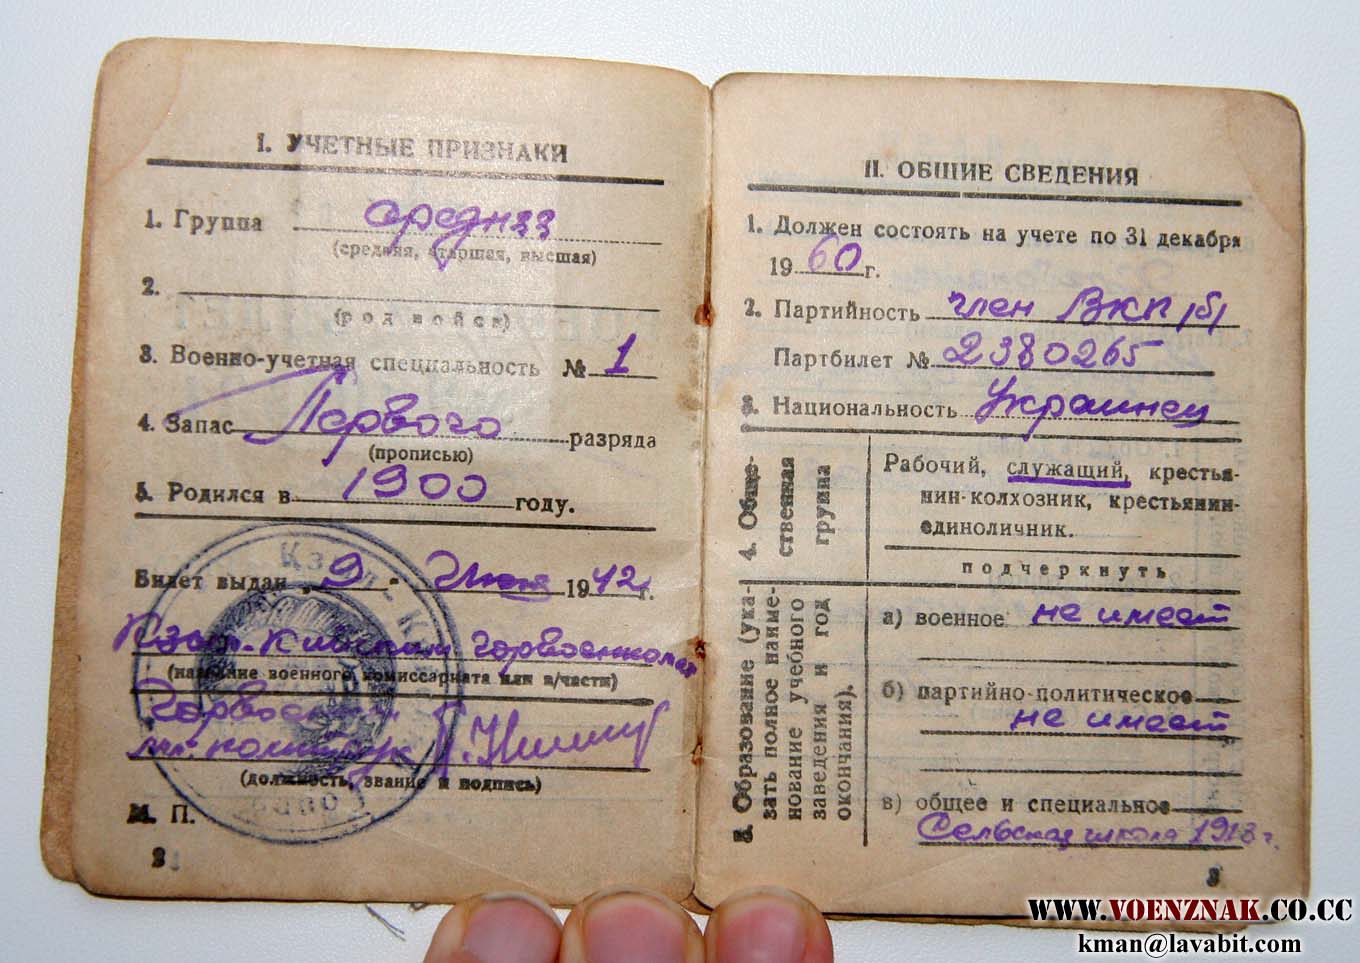 I. УЧЕТНЫЕ ПРИЗНАКИ
1. Группа средняя
(средняя, старшая, высшая)
2.
(род войск)
3. Военно-учетная специальность № 1
4. Запас Первого разряда
(прописью)
5. Родился в 1900 году.
Билет выдан „9 - 1942 г.
Кзыл-Кийским Горвоенкомат
(название военного комиссариата или в/части)
Горвоенком
мл. политрук
(должность, звание и подпись)
М. П.
2
II. ОБЩИЕ СВЕДЕНИЯ
1. Должен состоять на учете по 31 декабря
1960 г.
2. Партийность член ВКП(б)
Партбилет № 2380265
3. Национальность Украинец
4. Обще-
ственная
группа
Рабочий, служащий, крестья-
нин-колхозник, крестьянин-
единоличник.
подчеркнуть
5. Образование (ука-
зать полное наиме-
нование учебного
заведения и год
окончания).
а) военное не имеет
б) партийно-политическое
не имеет
в) общее и специальное
Сельская школа 1913 г.
3
WWW.VOENZNAK.CO.CC
kman@lavabit.com